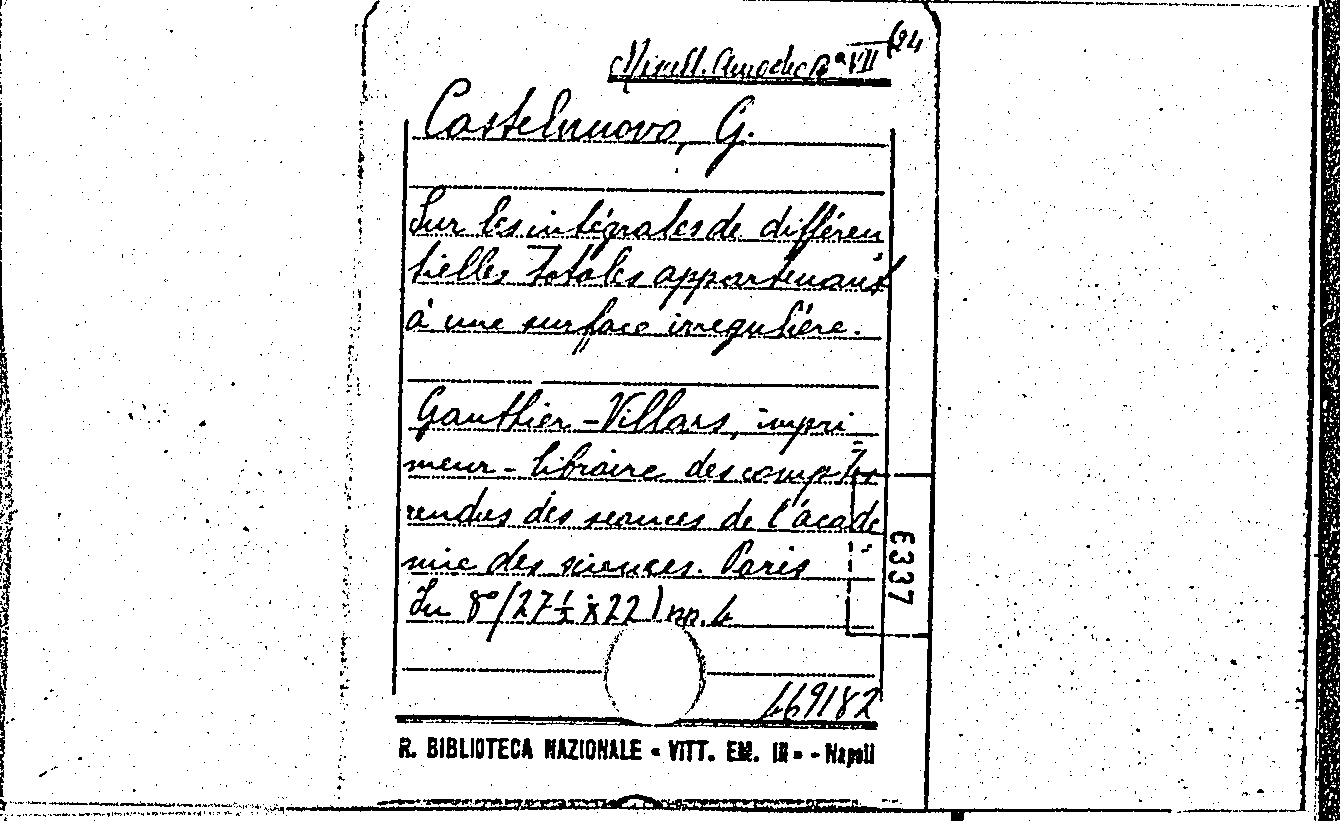 Miscell. Amodeo Bª VII (24
Castelnuovo, G.
Sur les intégrales de différen
tielles totales appartenant
à une surface irregulière.
Gauthier-Villars, impri_
meur-libraire des comptes
rendus des seances de l'acade
mie des sciences. Paris
In 8º (27½ x 22) pp. 4
469182
E337
R. BIBLIOTECA NAZIONALE « VITT. EM. III » - Napoli